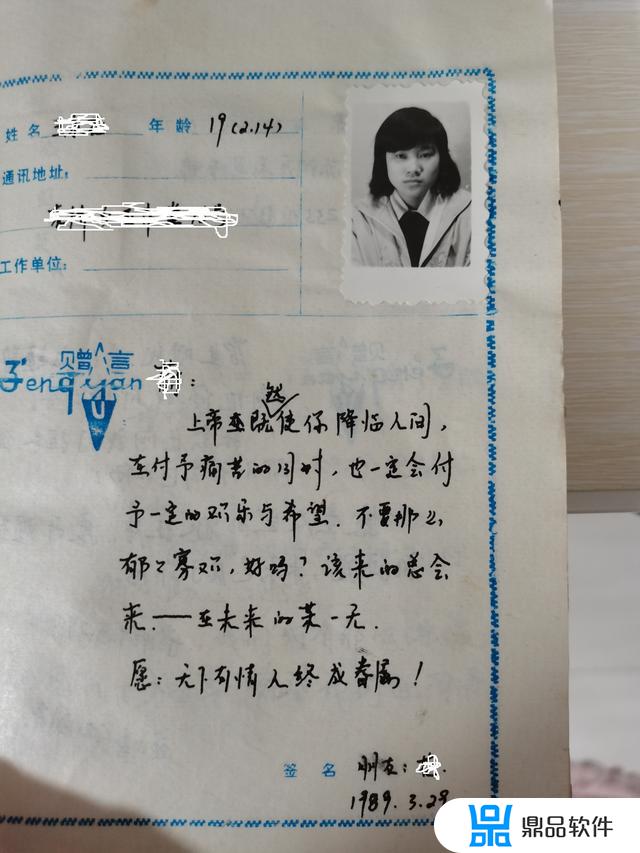 姓名 年龄 19(2.14)
通讯地址:
工作单位:
赠言
Zeng yan :
然
上帝在既使你降临人间,
在付予痛苦的同时,也一定会付
予一定的欢乐与希望.不要那么
郁々寡欢,好吗?该来的总会
来.——在未来的某一天.
愿:天下有情人终成眷属!
签名 朋友:
1989.3.29
鼎品软件